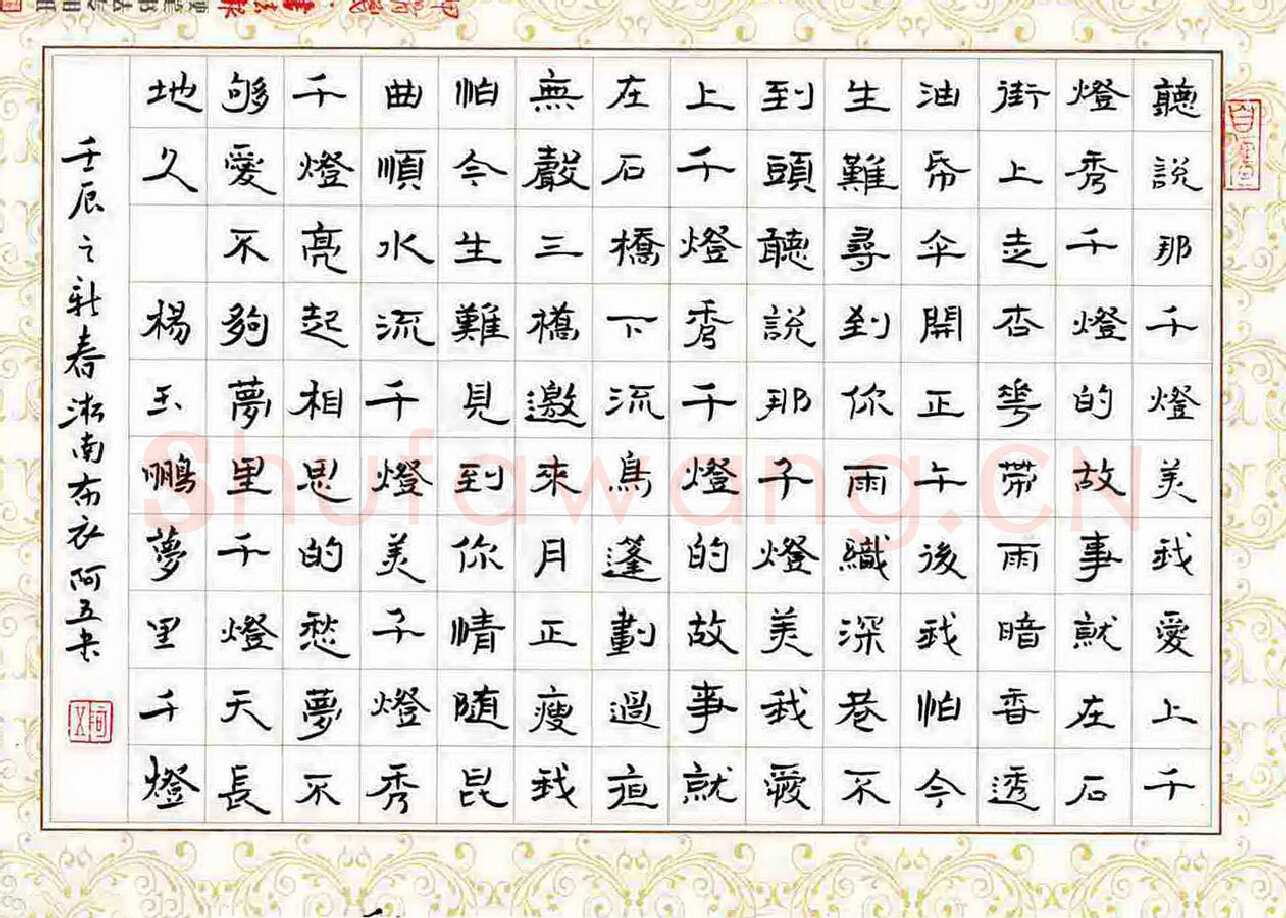 聽説那千燈美我愛上千
燈秀千燈的故事就在石
街上走杏花帶雨暗香透
油帋伞開正午後我怕今
生難尋到你雨織深巷不
到頭聽説那千燈美我愛
上千燈秀千燈的故事就
在石橋下流鳥蓬劃過
無聲三橋邀來月正瘦我
怕今生難見到你情随昆
曲順水流千燈美千燈秀
千燈亮起相思的愁夢不
够愛不夠夢里千燈天長
地久 楊玉鵬夢里千燈
壬辰之新春淞南布衣阿五书
Shufawang.CN